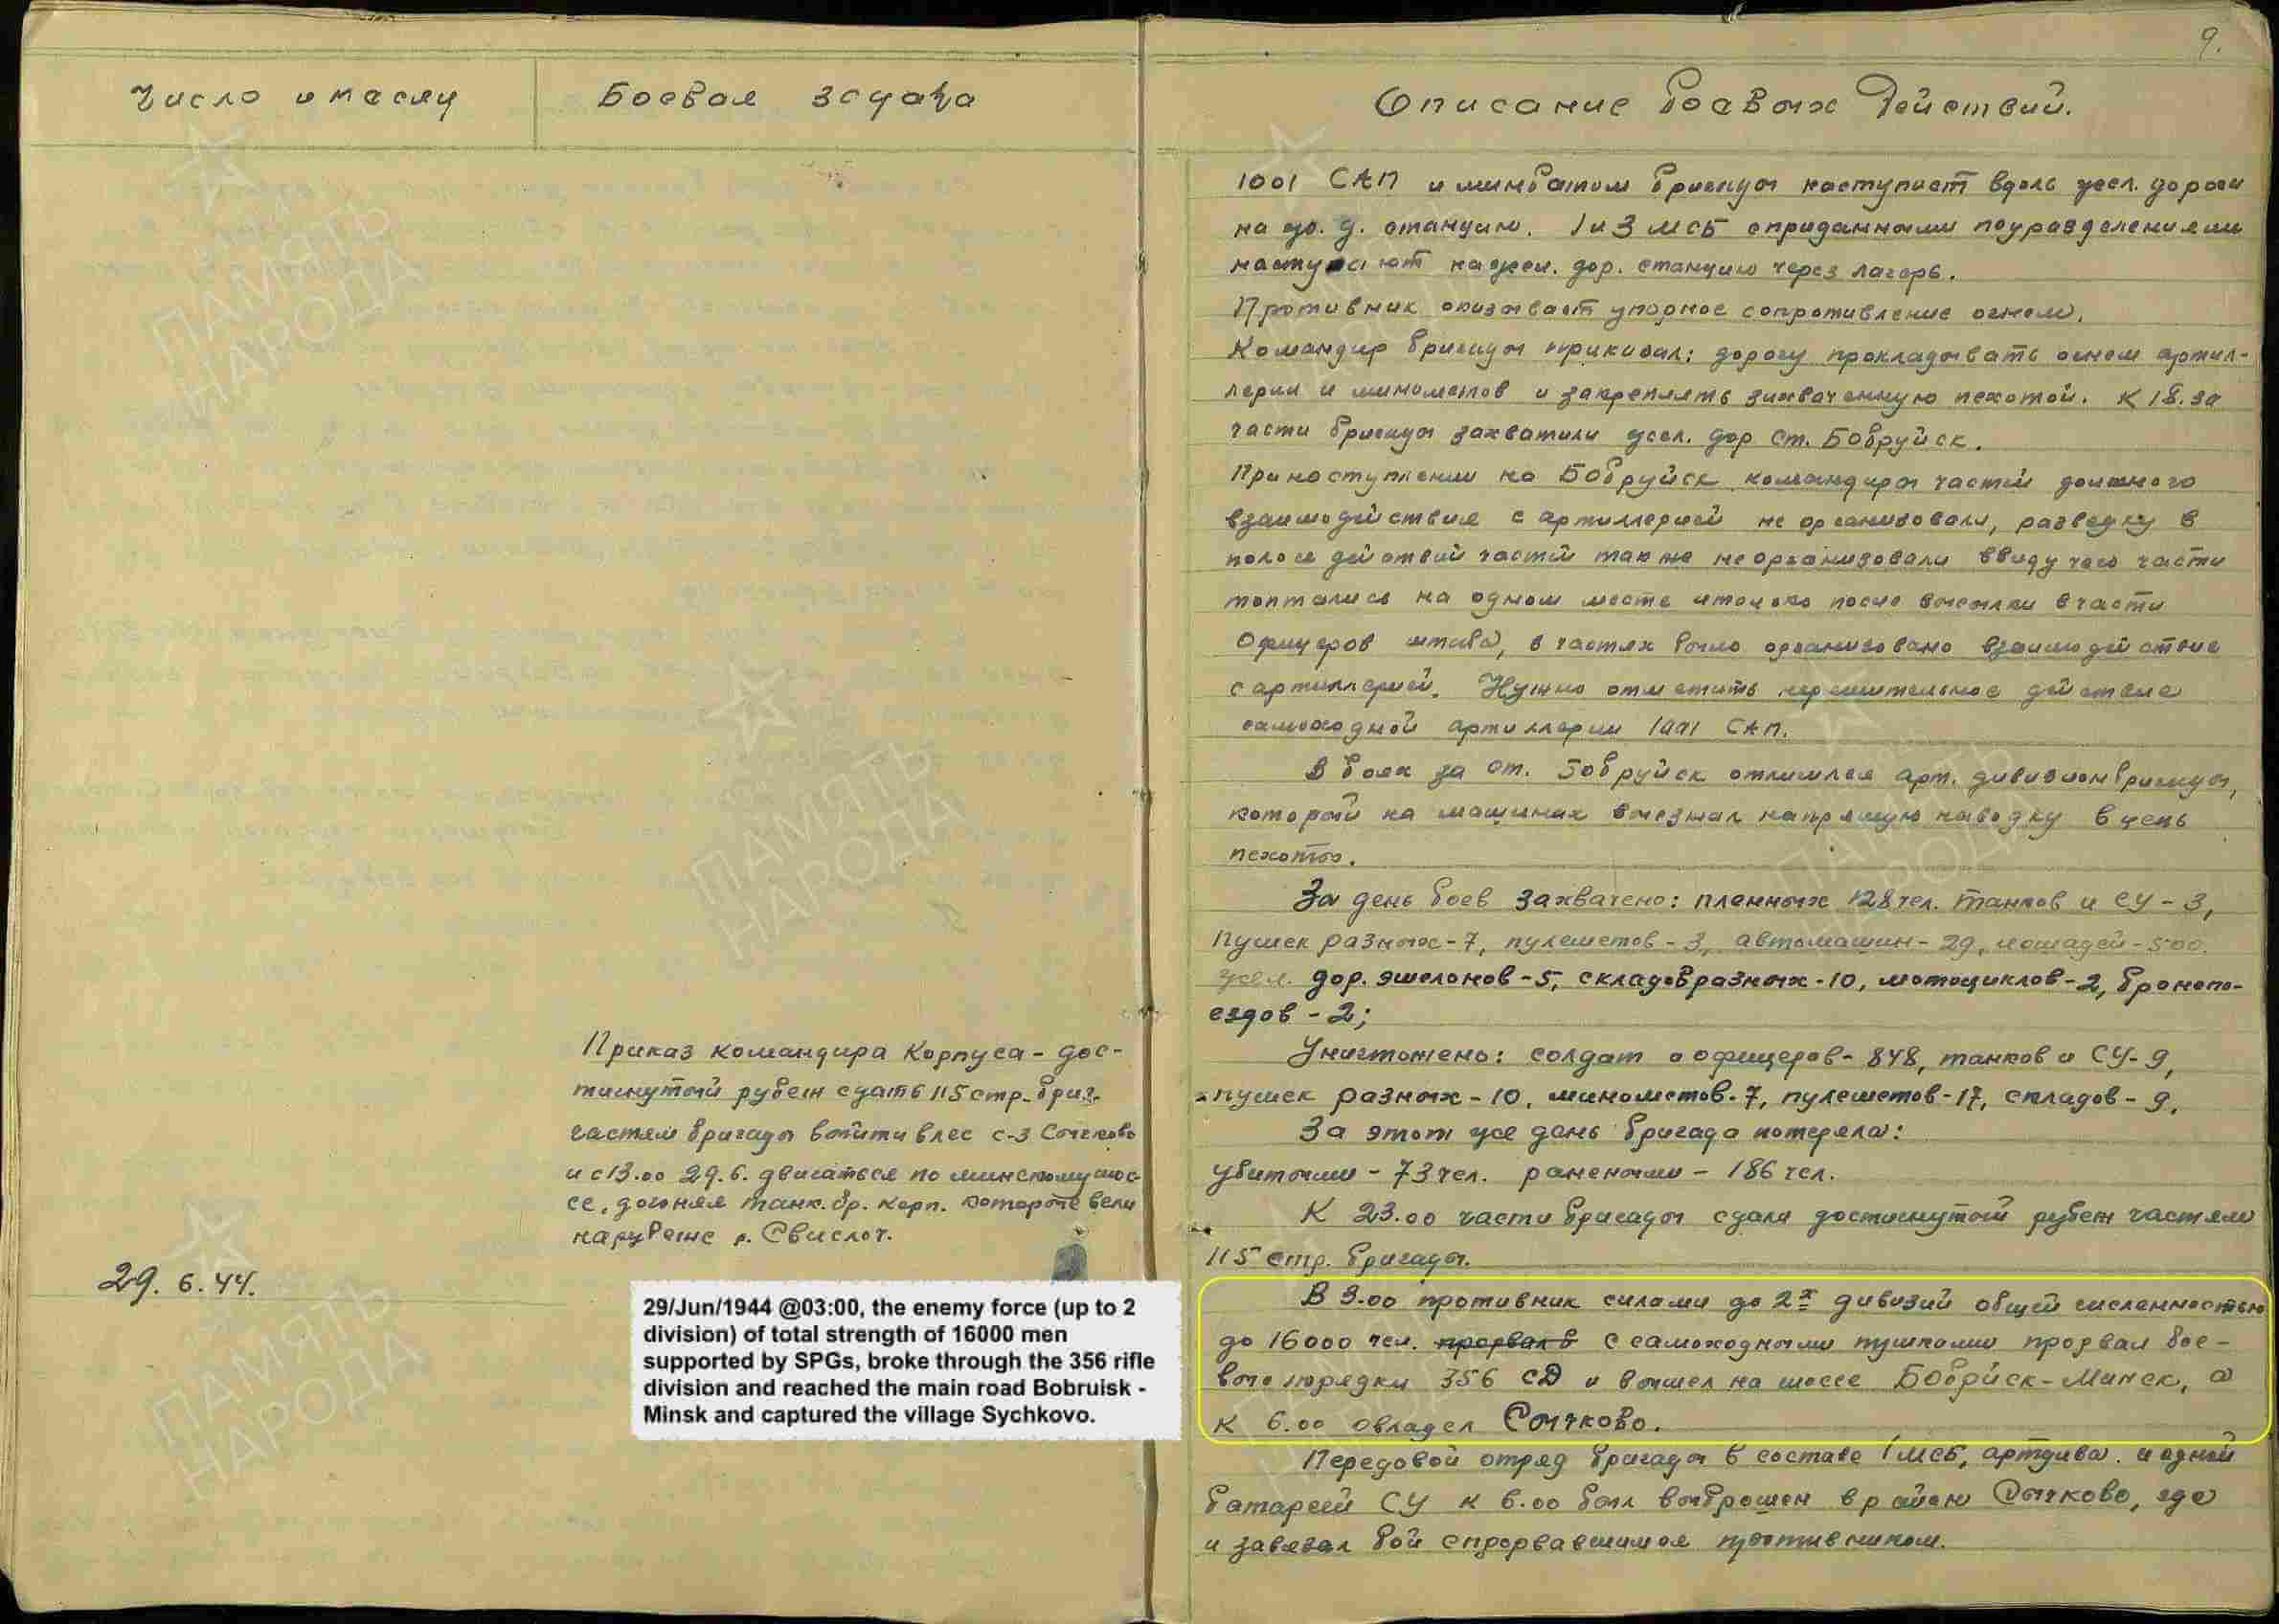 9.
Число и месяц
Боевая задача
Описание боевых действий.
1001 САП и минбатом бригады наступает вдоль жел. дороги
на жо. д. станцию. 1 и 3 МСБ с приданными подразделениями
наступают на жел. дор. станцию через лагерь.
Противник оказывает упорное сопротивление огнем.
Командир бригады приказал: дорогу прокладывать огнем артил-
лерии и минометов и закреплять захваченную пехотой. К 18.30
части бригады захватили жел. дор ст. Бобруйск.
При наступлении на Бобруйск командиры частей должного
взаимодействия с артиллерией не организовали, разведку в
полосе действий частей также не организовали ввиду чего части
топтались на одном месте и только после высылки в части
офицеров штаба, в частях было организовано взаимодействие
с артиллерией. Нужно отметить нерешительное действие
самоходной артиллерии 1001 САП.
В боях за ст. Бобруйск отличился арт. дивизион бригады,
который на машинах выезжал на прямую наводку в цепь
пехоты.
За день боев захвачено: пленных 128 чел. танков и СУ - 3,
пушек разных - 7, пулеметов - 3, автомашин - 29, лошадей - 500.
жел. дор. эшелонов - 5, складов разных - 10, мотоциклов - 2, бронепо-
ездов - 2;
Уничтожено: солдат и офицеров - 848, танков и СУ - 9,
пушек разных - 10, минометов - 7, пулеметов - 17, складов - 9.
За этот же день бригада потеряла:
убитыми - 73 чел. ранеными - 186 чел.
К 23.00 части бригады сдали достигнутый рубеж частям
115 стр. бригады.
Приказ командира Корпуса - дос-
тигнутый рубеж сдать 115 стр. бриг.
частям бригады выйти в лес с-з Сычково
и с 13.00 29.6. двигаться по минскому шос-
се, догоняя танк. бр. корп. которые вели
на рубеже р. Свислоч.
29. 6. 44.
29/Jun/1944 @03:00, the enemy force (up to 2
division) of total strength of 16000 men
supported by SPGs, broke through the 356 rifle
division and reached the main road Bobruisk -
Minsk and captured the village Sychkovo.
В 3.00 противник силами до 2х дивизий общей численностью
до 16000 чел. прорвал в с самоходными пушками прорвал бое-
вые порядки 356 СД и вышел на шоссе Бобрйск-Минск, а
к 6.00 овладел Сычково.
Передовой отряд бригады в составе 1 МСБ, артдива. и одной
батареей СУ к 6.00 был выброшен в район Сычково, где
и завязал бой с прорвавшимся противником.
ПАМЯТЬ
НАРОДА
ПАМЯТЬ
НАРОДА
ПАМЯТЬ
НАРОДА